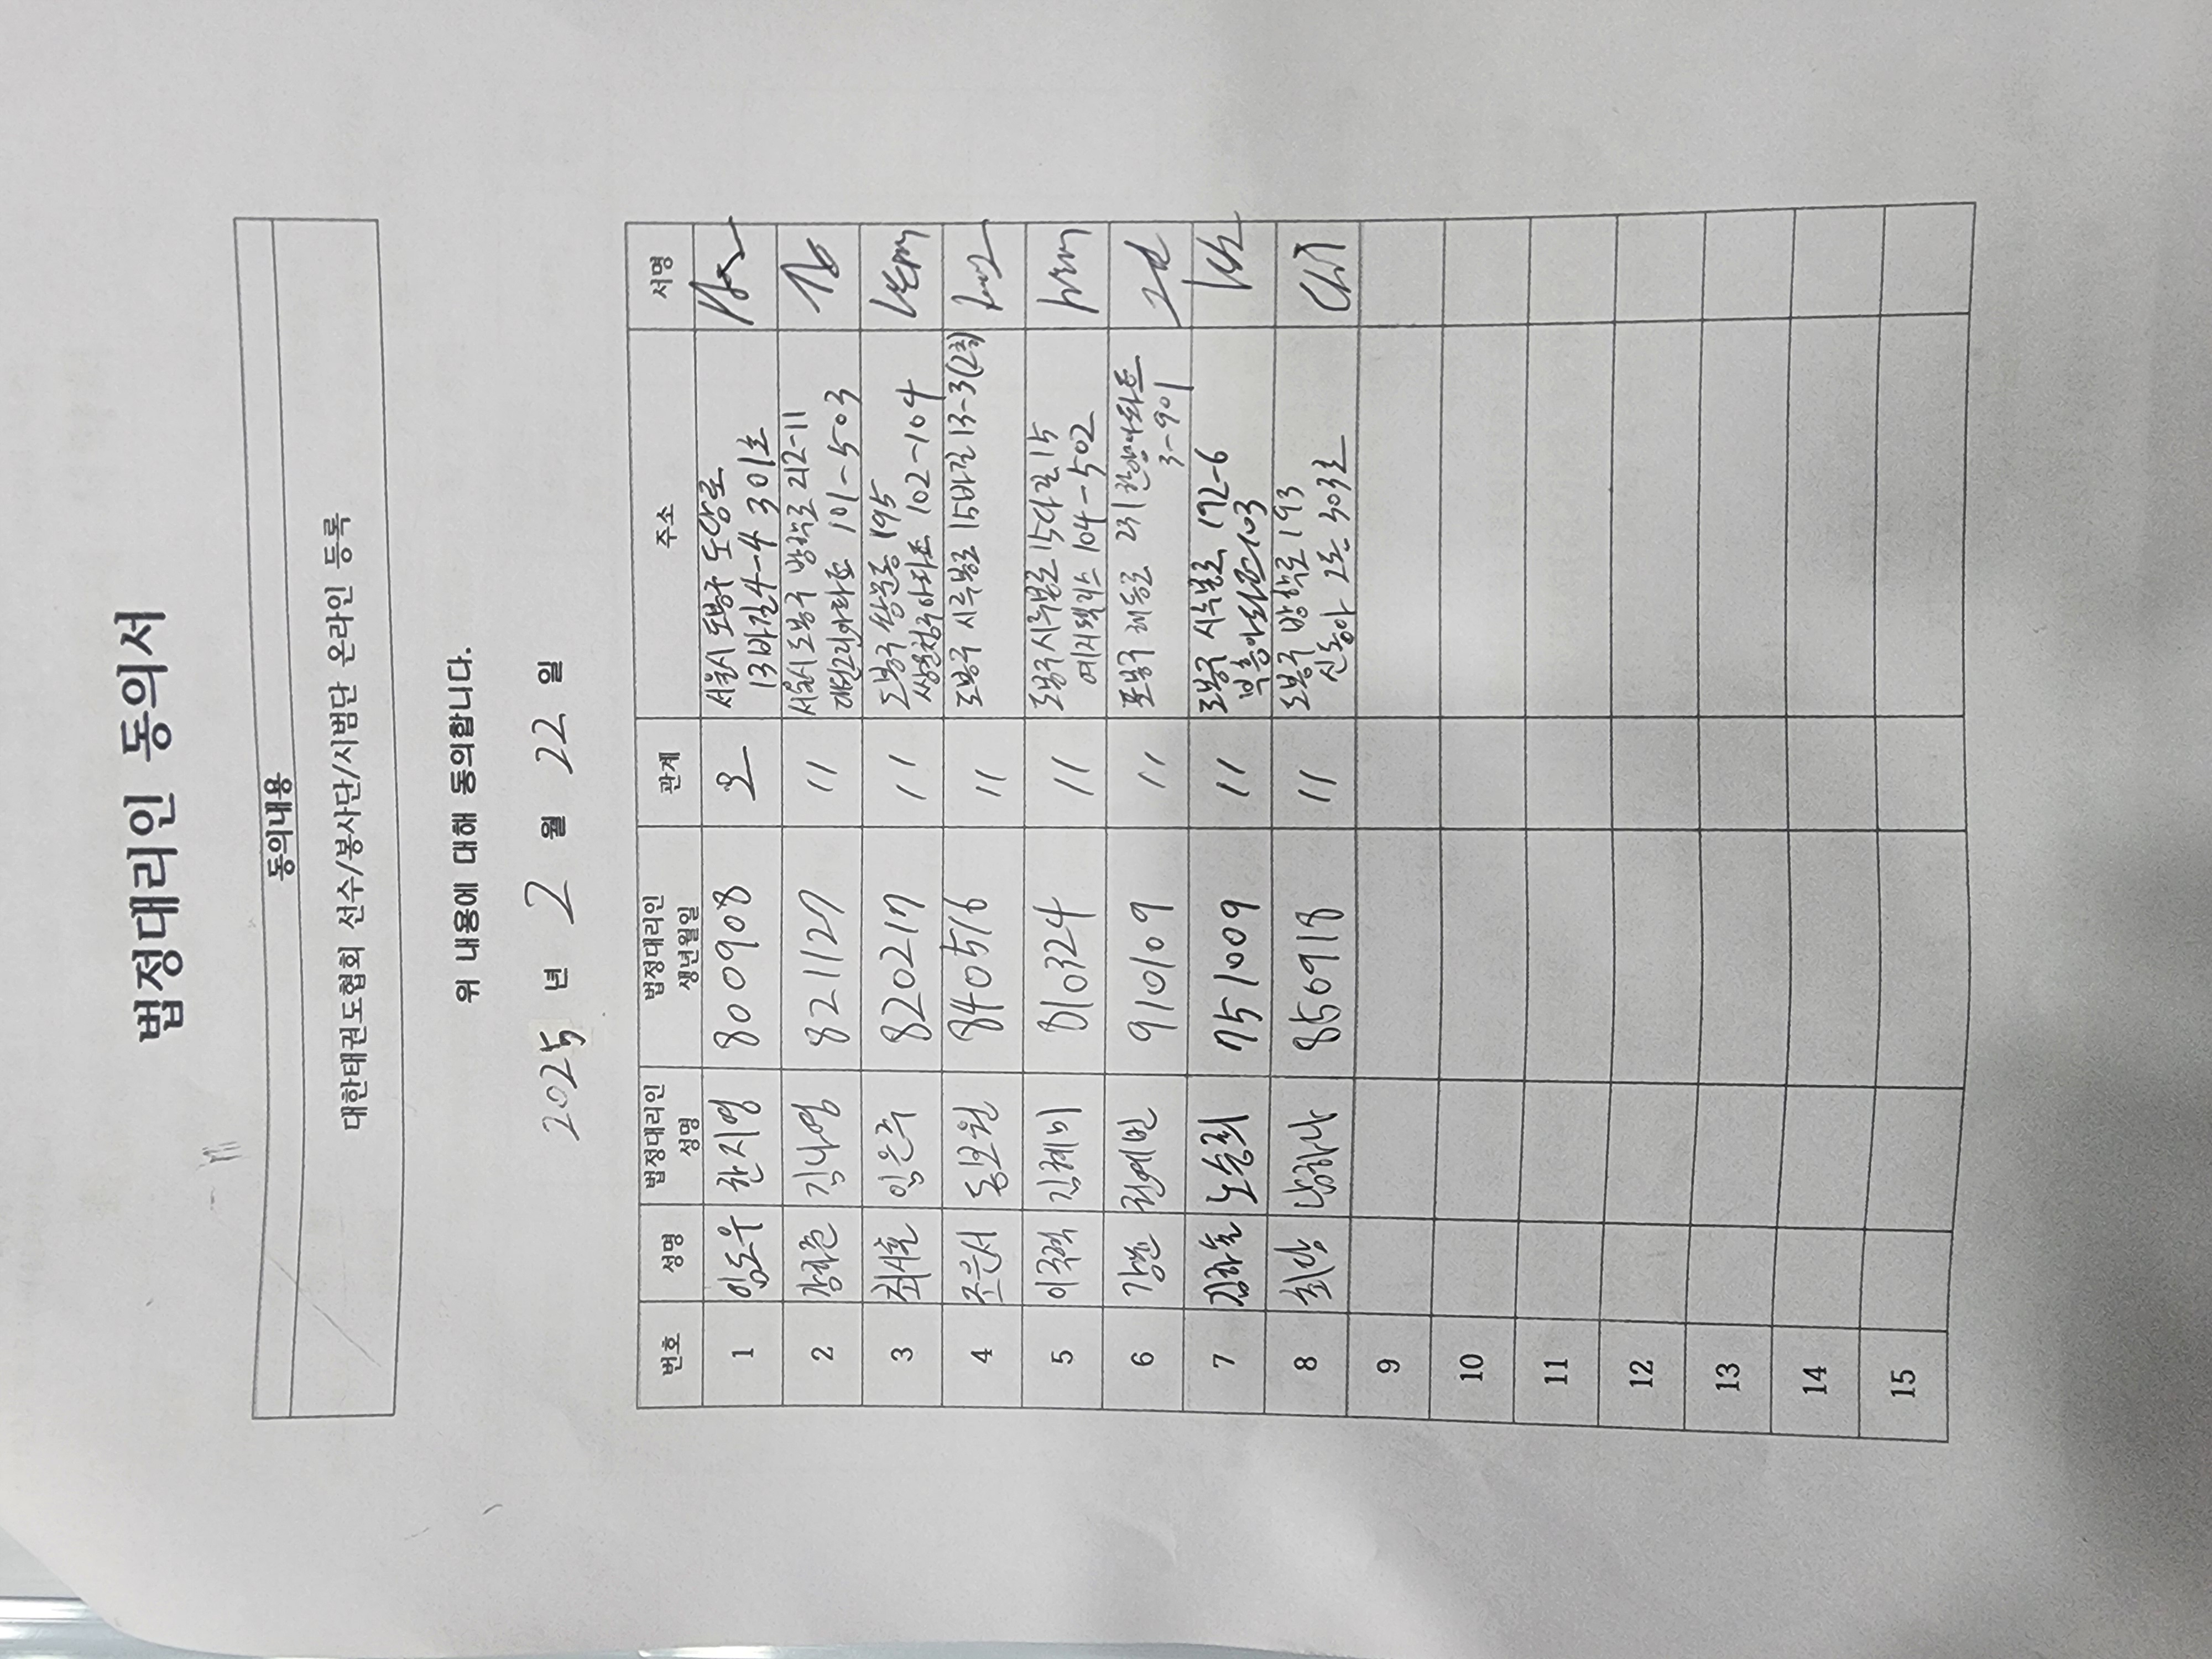 법정대리인 동의서
동의내용
대한태권도협회 선수/봉사단/시범단 온라인 등록
위 내용에 대해 동의합니다.
2025 년 2 월 22 일
번호 성명 법정대리인 성명 법정대리인 생년월일 관계 주소 서명
1 임도우 천지영 800908 모 서울시 도봉구 도당로
13바길 4-4 301호
2 김나영 821127 〃 서울시 도봉구 방학로 212-11
101-503
3 최서호 임은주 820217 〃 도봉구 쌍문동 195
쌍문청구아파트 102-104
4 조은서 840516 〃 도봉구 시루봉로 15바길 13-3(2층)
5 이주혁 김혜비 810324 〃 도봉구 시루봉로 15다길 15
104-502
6 권예빈 910109 〃 도봉구 해등로 231 한양아파트
3-901
7 김하늘 노승희 751009 〃 도봉구 시루봉로 172-6
103
8 최안 남하나 850918 〃 도봉구 방학로 193
신동아 2동 503호
9
10
11
12
13
14
15